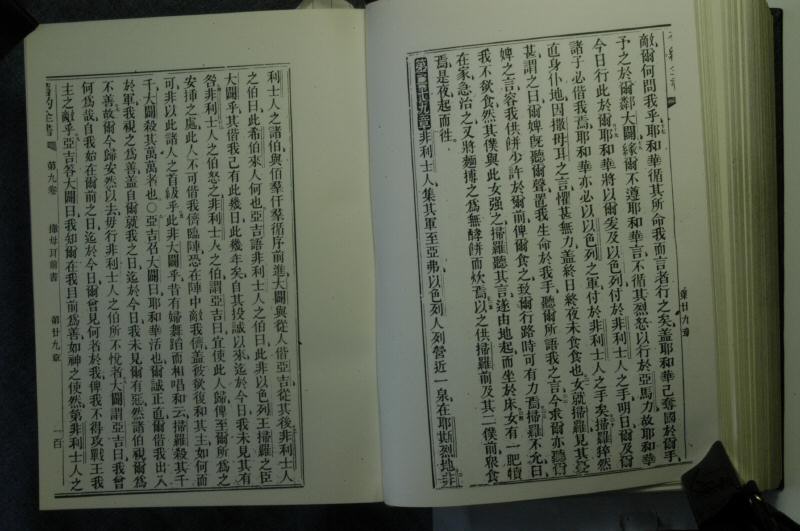 敵爾何問我乎耶和華循其所命我而言者行之矣蓋耶和華已奪國於爾手
予之於爾鄰大闢緣爾不遵耶和華言不循其烈怒以行於亞馬力故耶和華
今日行此於爾耶和華將以爾及以色列付於非利士人之手明日爾及爾
諸子必偕我焉耶和華亦必以以色列之軍付於非利士人之手矣掃羅猝然
直身仆地因撒母耳之言懼甚無力蓋終日終夜未食食也女就掃羅見其
甚謂之曰爾婢旣聽爾聲置我生命於我手聽爾所語我之言今求爾亦聽爾
婢之言容我供餅少許於爾前俾爾食之致爾行路時可有力焉掃羅不允曰
我不欲食然其僕與此女强之掃羅聽其言遂由地起而坐於床女有一肥犢
在家急治之又將麵搏之爲無酵餅而炊焉以之供掃羅前及其二僕前衆食
焉是夜起而徃
第廿九章非利士人集其軍至亞弗以色列人列營近一泉在耶斯烈地非
第廿九章
利士人之諸伯與伯羣仟羣循序前進大闢與從人偕亞吉從其後非利士人
之伯曰此希伯來人何也亞吉語非利士人之伯曰此非以色列王掃羅之臣
大闢乎其偕我已有此幾日此幾年矣自其投誠以來迄於今日我未見其有
咎非利士人之伯怒之非利士人之伯謂亞吉曰宜使此人歸俾至爾所爲之
安揷之處此人不可偕我儕臨陣恐在陣中敵我儕蓋彼欲復和其主如何而
可非以此諸人之首級乎此非大闢乎昔有婦舞蹈而相唱和云掃羅殺其千
千大闢殺其萬萬者也〇亞吉召大闢曰耶和華活也爾誠正直爾偕我出入
於軍我視之爲善蓋自爾就我之日迄於今日我未見爾有惡然諸伯視爾爲
不善故爾今歸安然以去毋行非利士人之伯所不悅者大闢謂亞吉曰我曾
何爲哉自我始在爾前之日迄於今日爾曾見何者於我俾我不得攻戰王我
主之敵乎亞吉答大闢曰我知爾在我目前爲善如神之使然第非利士人之
舊約全書 第九卷 撒母耳前書 第廿九章 一百